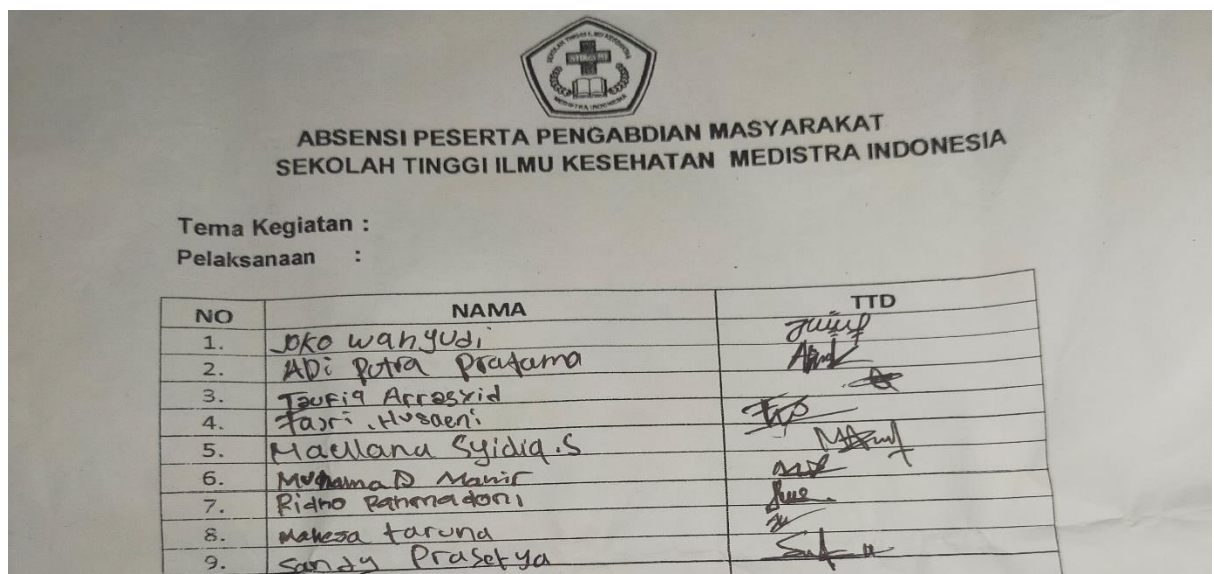 ABSENSI PESERTA PENGABDIAN MASYARAKAT
SEKOLAH TINGGI ILMU KESEHATAN MEDISTRA INDONESIA
Tema Kegiatan :
Pelaksanaan :
NO NAMA TTD
1. Joko wahyudi
2. ADi Putra Pratama
3. Taufiq Arrasyid
4. Fasri . Husaeni
5. Maullana Syidiq.S
6. Muhamad Manir
7. Ridho Rahmadoni
8. Mahesa taruna
9. Sandy Prasetya